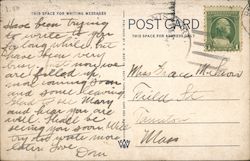 THIS SPACE FOR WRITING MESSAGES
POST CARD
THIS SPACE FOR ADDRESS ONLY
Have been trying
to write to you
for long while but
have been very
busy. Just now we
are filled up
and coming down
and some leaving
Glad to see Mary
and hear you are
well. Shall be
seeing you soon. Will
try and write more
later. Love
Miss Grace
Field St
Taunton
Mass